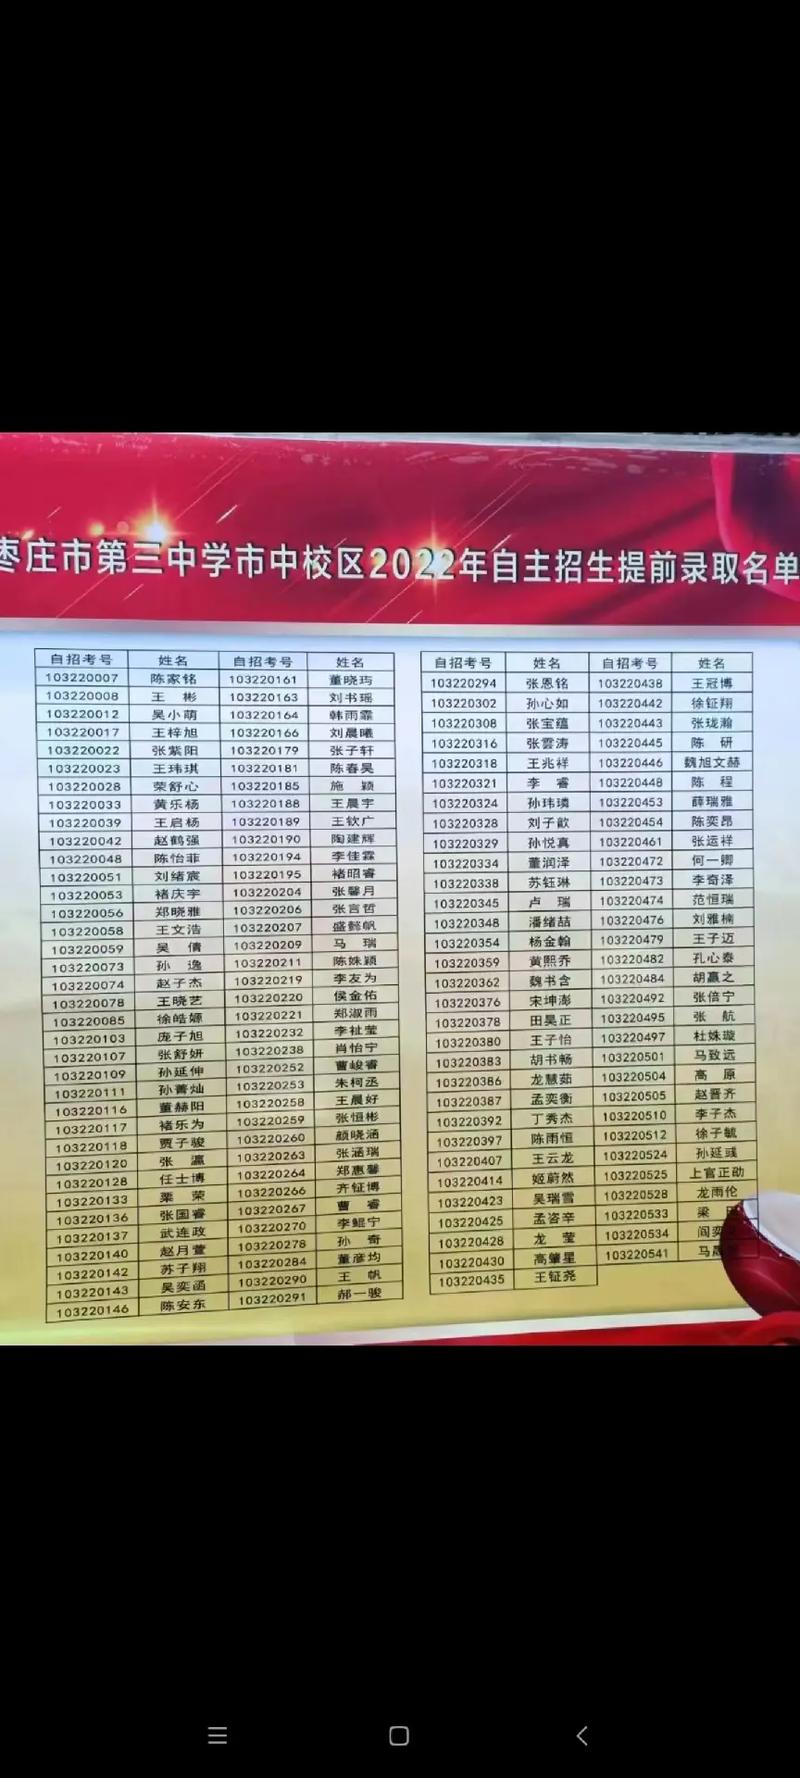 枣庄市第三中学市中校区2022年自主招生提前录取名单
自招考号 姓名 自招考号 姓名
103220007 陈家铭 103220161 董晓玙
103220008 王 彬 103220163 刘书瑶
103220012 吴小萌 103220164 韩雨霏
103220017 王梓旭 103220166 刘晨曦
103220022 张紫阳 103220179 张子轩
103220023 王玮琪 103220181 陈春昊
103220028 荣舒心 103220185 施 颖
103220033 黄乐杨 103220188 王晨宇
103220039 王启杨 103220189 王钦广
103220042 赵鹤强 103220190 陶建辉
103220048 陈怡菲 103220194 李佳霖
103220051 刘绪宸 103220195 褚昭睿
103220053 褚庆宇 103220204 张馨月
103220056 郑晓雅 103220206 张言哲
103220058 王文浩 103220207 盛懿帆
103220059 吴 倩 103220209 马 瑞
103220073 孙 逸 103220211 陈姝颖
103220074 赵子杰 103220219 李友为
103220078 王晓艺 103220220 侯金佑
103220085 徐皓嫄 103220221 郑淑雨
103220103 庞子旭 103220232 李祉莹
103220107 张舒妍 103220238 肖怡宁
103220109 孙延伸 103220252 曹峻睿
103220111 孙菁灿 103220253 朱柯丞
103220116 董赫阳 103220258 王晨好
103220117 褚乐为 103220259 张恒彬
103220118 贾子骏 103220260 颜晓涵
103220120 张 瀛 103220263 张涵瑞
103220128 任士博 103220264 郑惠馨
103220133 栗 荣 103220266 齐钲博
103220136 张国睿 103220267 曹 睿
103220137 武连政 103220270 李鲲宁
103220140 赵月萱 103220278 孙 奇
103220142 苏子翔 103220284 董彦均
103220143 吴奕函 103220290 王 帆
103220146 陈安东 103220291 郝一骏
自招考号 姓名 自招考号 姓名
103220294 张恩铭 103220438 王冠博
103220302 孙心如 103220442 徐钲翔
103220308 张宝蕴 103220443 张珑瀚
103220316 张雲涛 103220445 陈 研
103220318 王兆祥 103220446 魏旭文赫
103220321 李 睿 103220448 陈 程
103220324 孙玮璘 103220453 薛瑞雅
103220328 刘子歆 103220454 陈奕昂
103220329 孙悦真 103220461 张运祥
103220334 董润泽 103220472 何一卿
103220338 苏钰琳 103220473 李奇泽
103220345 卢 瑞 103220474 范恒瑞
103220348 潘绪喆 103220476 刘雅楠
103220354 杨金翰 103220479 王子迈
103220359 黄熙乔 103220482 孔心泰
103220362 魏书含 103220484 胡嬴之
103220376 宋坤澎 103220492 张倍宁
103220378 田昊正 103220495 张 航
103220380 王子怡 103220497 杜姝璇
103220383 胡书畅 103220501 马致远
103220386 龙慧茹 103220504 高 原
103220387 孟奕衡 103220505 赵晋齐
103220392 丁秀杰 103220510 李子杰
103220397 陈雨恒 103220512 徐子毓
103220407 王云龙 103220524 孙延彧
103220414 姬蔚然 103220525 上官正劭
103220423 吴瑞雪 103220528 龙雨伦
103220425 孟咨辛 103220533 梁
103220428 龙 莹 103220534 阎奕
103220430 高肇星 103220541 马
103220435 王钲尧